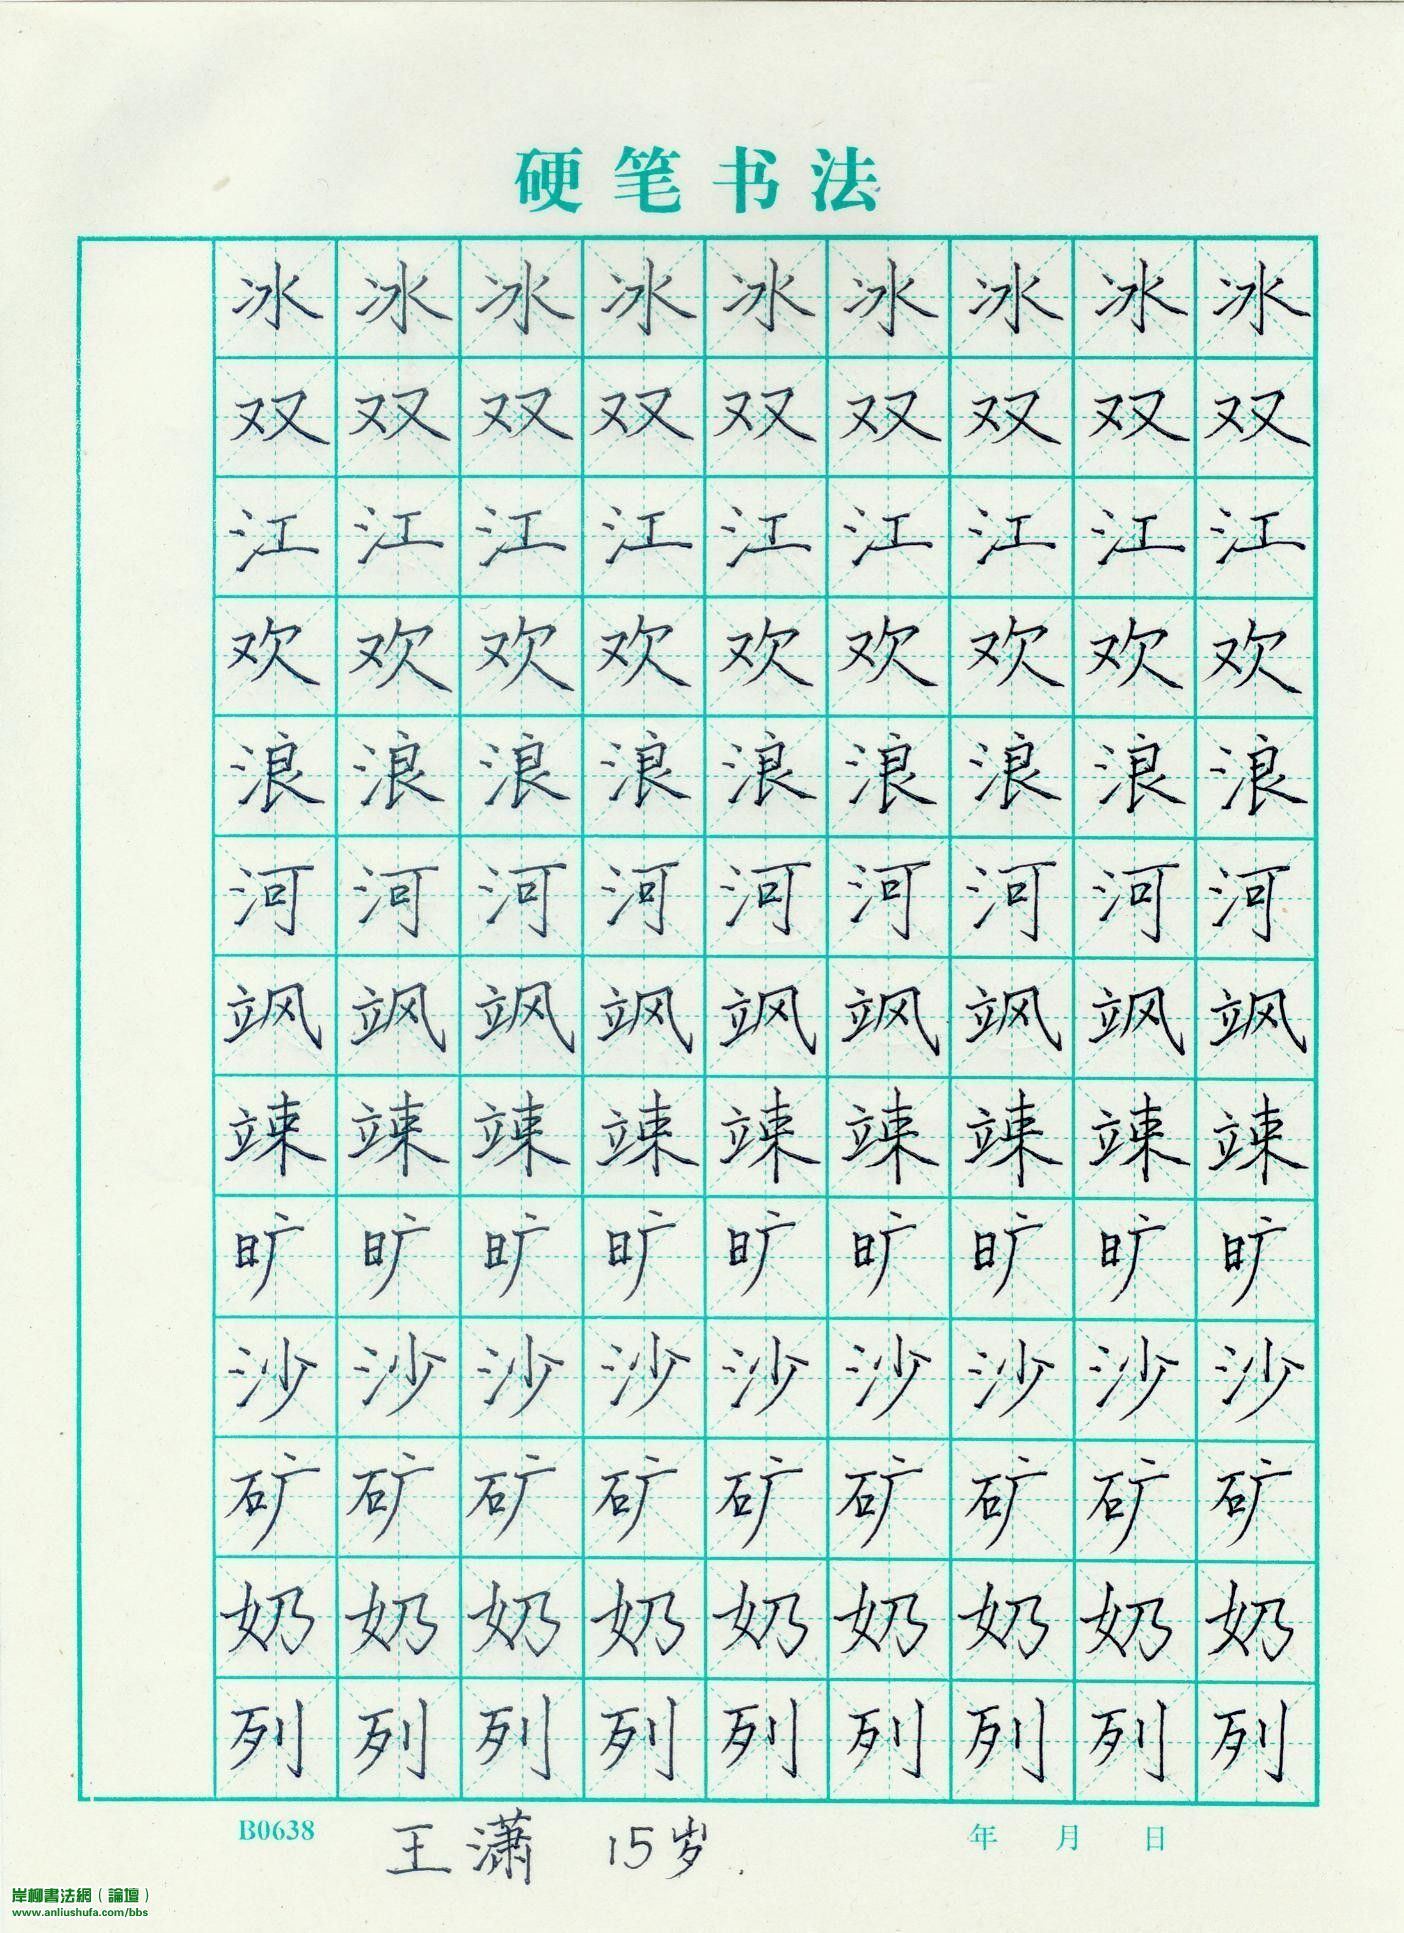 硬笔书法
冰冰冰冰冰冰冰冰冰
双双双双双双双双双
江江江江江江江江江
欢欢欢欢欢欢欢欢欢
浪浪浪浪浪浪浪浪浪
河河河河河河河河河
飒飒飒飒飒飒飒飒飒
竦竦竦竦竦竦竦竦竦
旷旷旷旷旷旷旷旷旷
沙沙沙沙沙沙沙沙沙
矿矿矿矿矿矿矿矿矿
奶奶奶奶奶奶奶奶奶
列列列列列列列列列
B0638 王潇 15岁. 年 月 日
岸柳書法網(論壇)
www.anliushufa.com/bbs